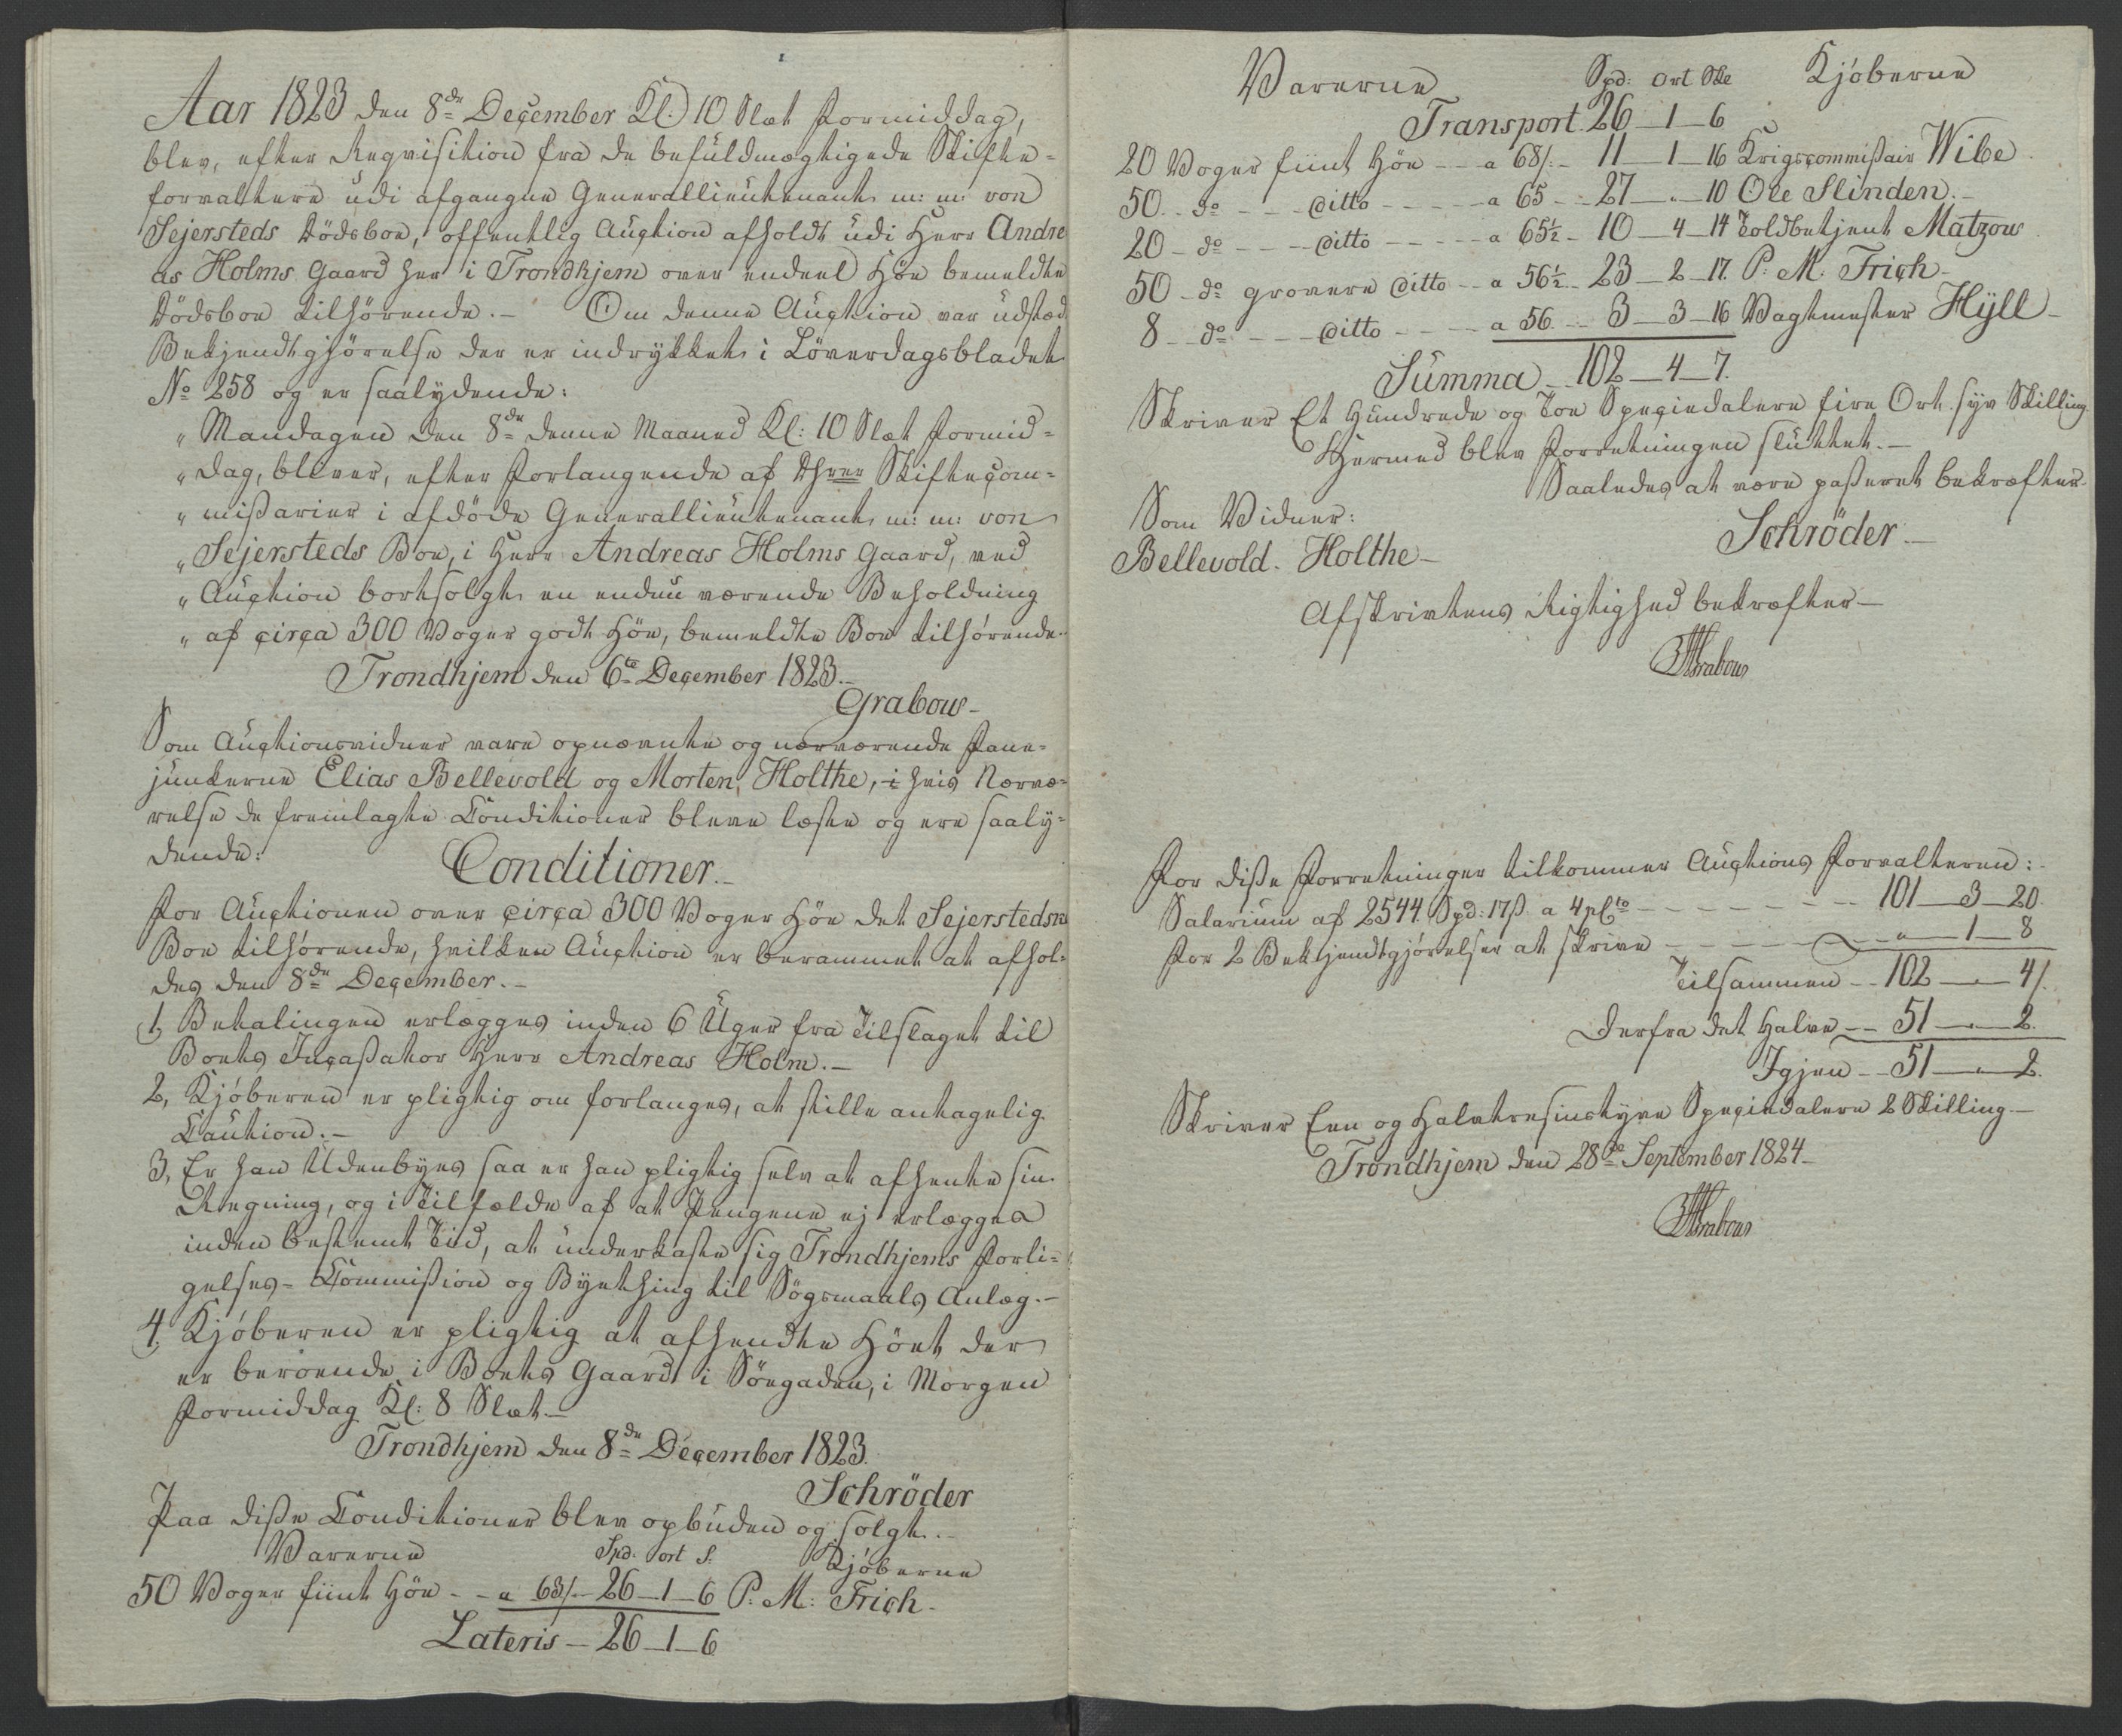 Aar 1823 den 8de December Kl. 10 Slæt Formiddag,
blev, efter Reqvisition fra de befuldmægtigede Skifte-
forvaltere udi afgangne Generallieutenant m: m: von
Sejersteds Dödsboe, offentlig Auction afholdt udi Herr Andre
as Holms Gaard her i Trondhjem over endeel Höe bemeldte
Dödsboe tilhörende.- Om denne Auction var udstæd
Bekjendtgjörelse der er indrykket i Löverdagsbladet
No 258 og er saalydende:
„ Mandagen den 8de denne Maaned Kl: 10 Slæt Formid-
„ dag, bliver, efter Forlangende af Dhrrr Skiftecom-
„ missarier i afdöde Generallieutenant m: m: von
„ Sejersteds Boe, i Herr Andreas Holms Gaard, ved
„ Auction bortsolgt en endnu værende Beholdning
„ af circa 300 Voger godt Höe, bemeldte Boe tilhörende.
Trondhjem den 6te December 1823.-
Grabow-
Som Auctionsvidner vare opnævnte og nærværende Fane-
junkerne Elias Bellevold og Morten Holthe, i hvis Nærvæ-
relse de fremlagte Conditioner bleve læste og ere saaly-
dende:
Conditioner.-
For Auctionen over circa 300 Voger Höe det Sejerstedske
Boe tilhörende, hvilken Auction er berammet at afhol-
des den 8de December.-
1, Betalingen erlægges inden 6 Uger fra Tilslaget til
Boets Incassator Herr Andreas Holm.-
2, Kjöberen er pligtig om forlanges, at stille antagelig
Caution.-
3, Er han Udenbyes saa er han pligtig selv at afhente sin
Regning, og i Tilfælde af at Pengene ej erlægges
inden bestemt Tiid, at underkaste sig Trondhjems Forli-
gelses-Commission og Byething til Sögsmaals Anlæg.-
4, Kjöberen er pligtig at afhendte Höet der
er beroende i Boets Gaard i Söegaden, i Morgen
Formiddag Kl: 8 Slæt.-
Trondhjem den 8de December 1823.
Schröder
Paa disse Conditioner blev opbuden og solgt.-
Varerne Spd. ort s. Kjöberne
50 Voger fiint Höe - - a 63/.- 26-1-6 P. M: Frich-
Lateris - 26-1-6
Varerne Spd: ort Ske Kjöberne
Transport. 26-1-6
20 Voger fiint Höe - - a 68/.- 11-1-16 Krigscommissair Wibe
50 - do - - - Ditto - - - - - a 65 - - 27-„-10 Ole Slinden.-
20 - do - - - Ditto - - - - - a 65½ - 10-4-14 Toldbetjent Matzow
50 - do grovere Ditto - - a 56½ - 23-2-17. P: M. Frich-
8 - do - - - Ditto - - - - a 56 - - 3-3-16 Vagtmester Hyll-
Summa - - 102-4-7.
Skriver Et Hundrede og Toe Speciedalere fire Ort syv Skilling.
Hermed blev Forretningen sluttet.-
Saaledes at være passeret bekræfter
Som Vidner: Schröder-
Bellevold. Holthe-
Afskrivtens Rigtighed bekræfter-
Grabow
For disse Forretninger tilkommer Auctions Forvalteren:-
Salarium af 2544 Spd: 17ß. a 4 pCto - - - - - - - 101-3-20.
For 2 Bekjendtgjörelser at skrive - - - - - - „-1-8
Tilsammen - - 102-„-4/.
Derfra det Halve - - 51-„-2.
Igjen - - 51-„-2.
Skriver Een og Halvtresinstyve Speciedalere 2 Skilling-
Trondhjem den 28de September 1824-
Grabow